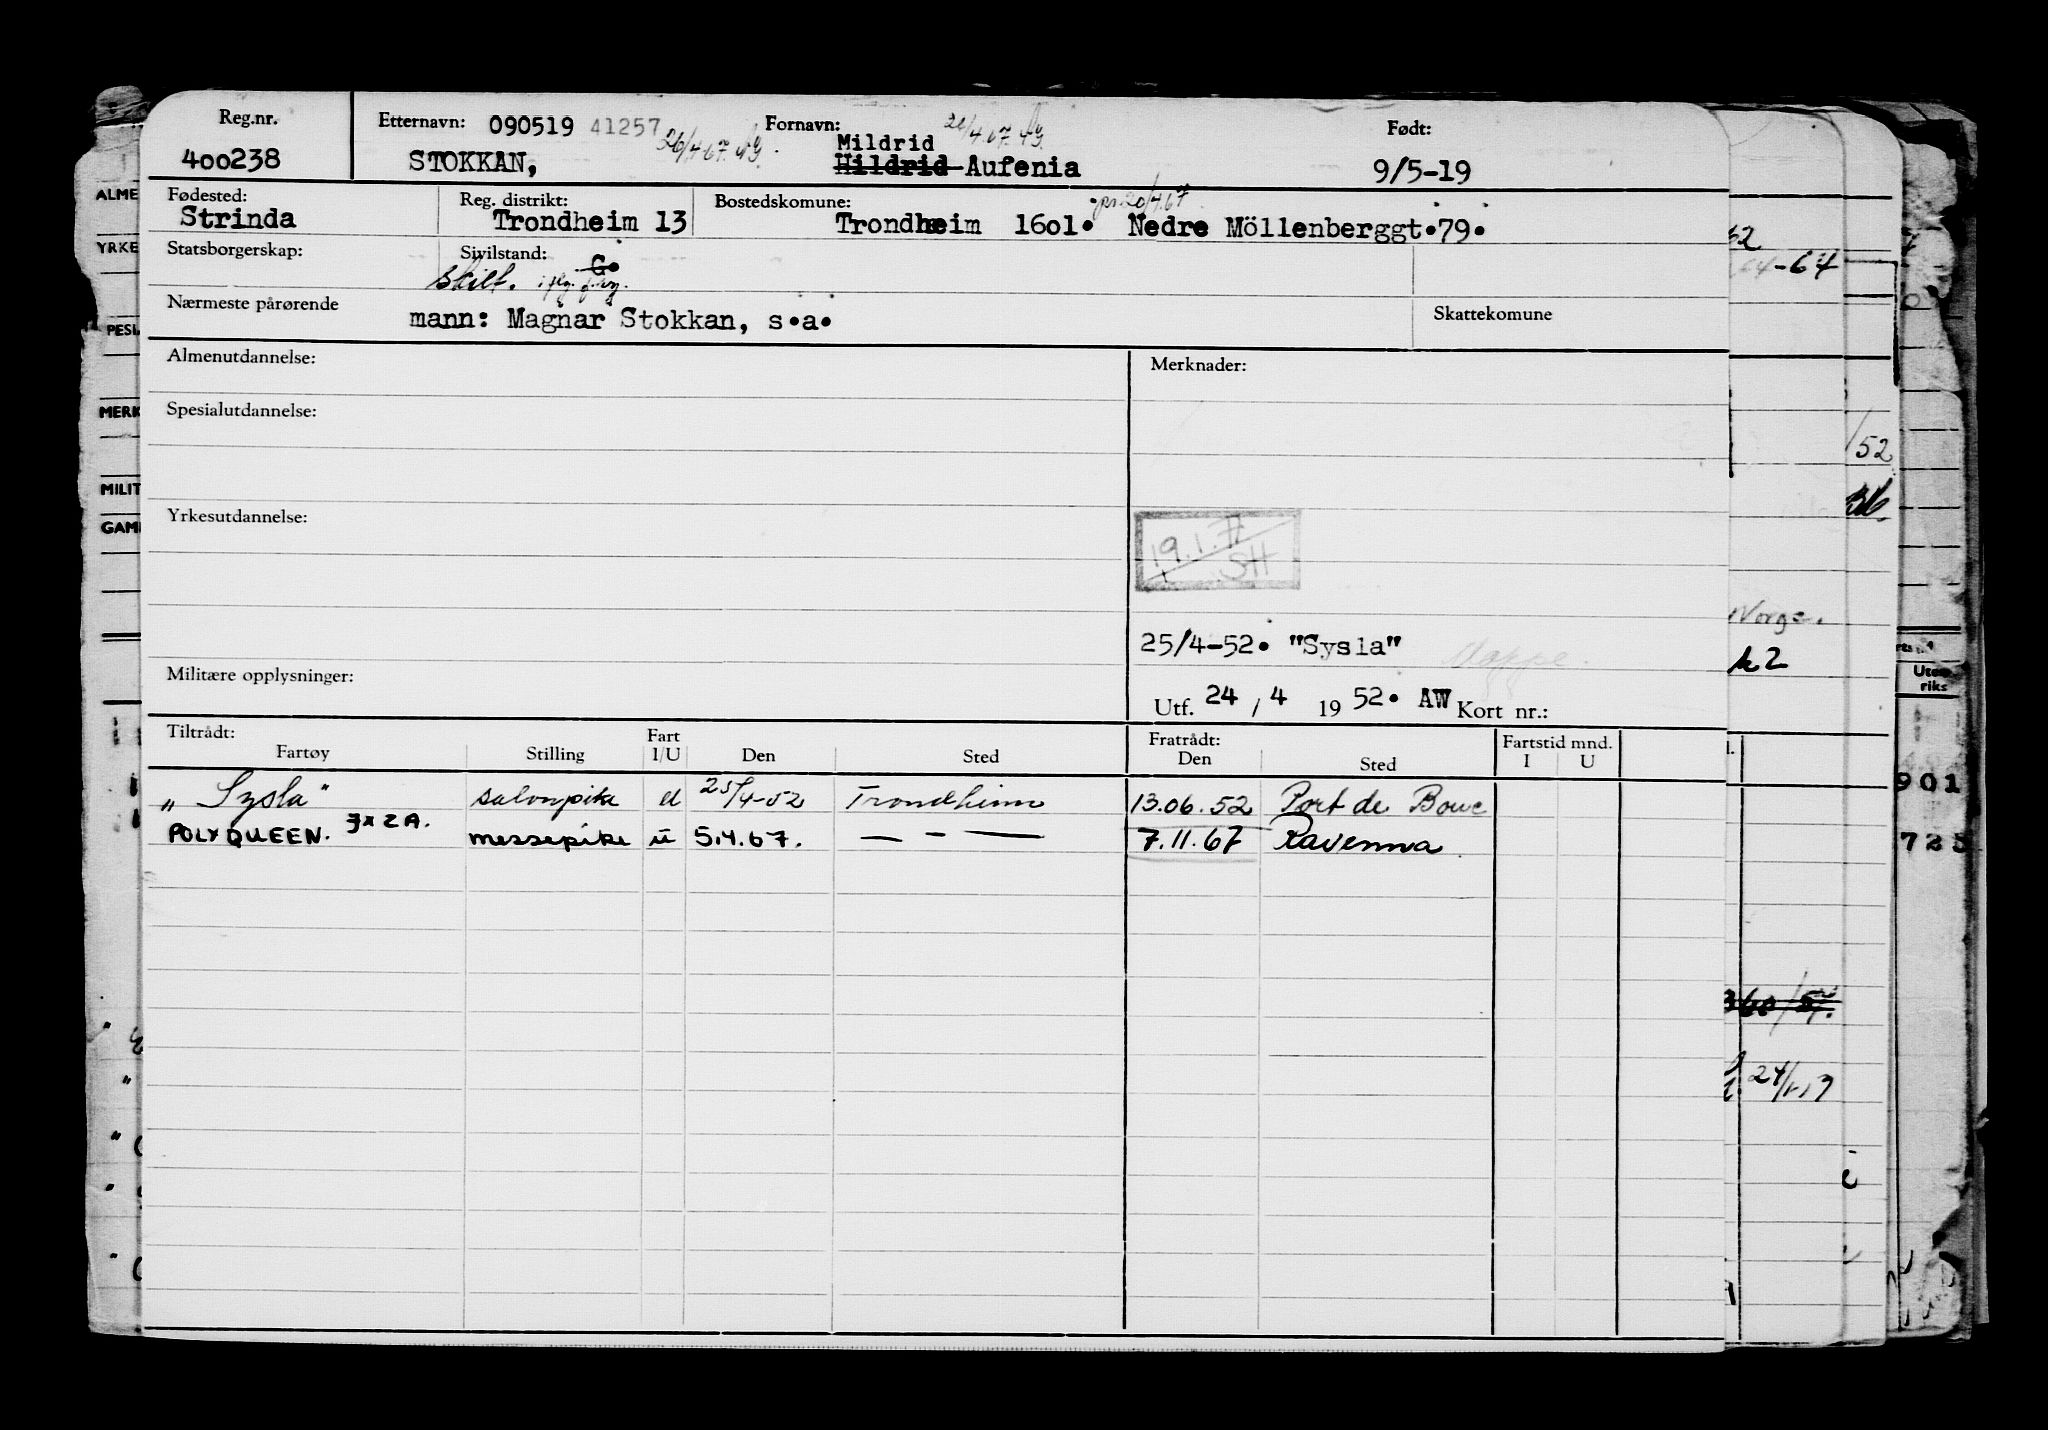 Reg.nr. Etternavn: 090519 41257 26/4 67. Fornavn: Født:
400238 STOKKAN, Mildrid
Hildrid Aufenia 9/5-19
Fødested: Reg. distrikt: Bostedskomune:
Strinda Trondheim 13 Trondheim 16o1. Nedre Möllenberggt.79.
Statsborgerskap: Sivilstand: G.
skilt.
Nærmeste pårørende
mann: Magnar Stokkan, s.a. Skattekomune
Almenutdannelse: Merknader:
Spesialutdannelse:
Yrkesutdannelse:
19.1.77
SH
25/4-52. "Sysla" Mappe.
Militære opplysninger:
Utf. 24 / 4 19 52. AW Kort nr.:
Tiltrådt: Fratrådt: Fartstid mnd.
Fartøy Stilling Fart I/U Den Sted Den Sted I U
"Sysla" salonpike u 25/4-52 Trondheim 13.06.52 Port de Bouc
POLYQUEEN. 7x2A. messepike u 5.4.67. — - — 7.11.67 Ravenna
ALME
YRKE
PESI
MERK
MILIT
GAM
-64
52
Norge.
Uten-
riks
901
24/